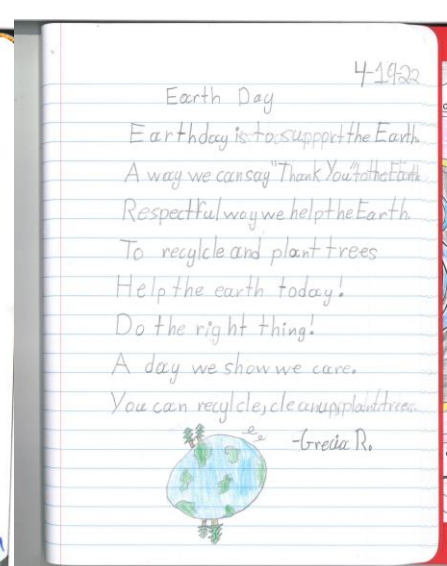 4-19-22
Earth Day
Earthday is to suppport the Earth
A way we can say "Thank You" to the Earth
Respectful way we help the Earth
To recylcle and plant trees
Help the earth today!
Do the right thing!
A day we show we care.
You can recylcle, clean up, plant trees.
-Grecia R.